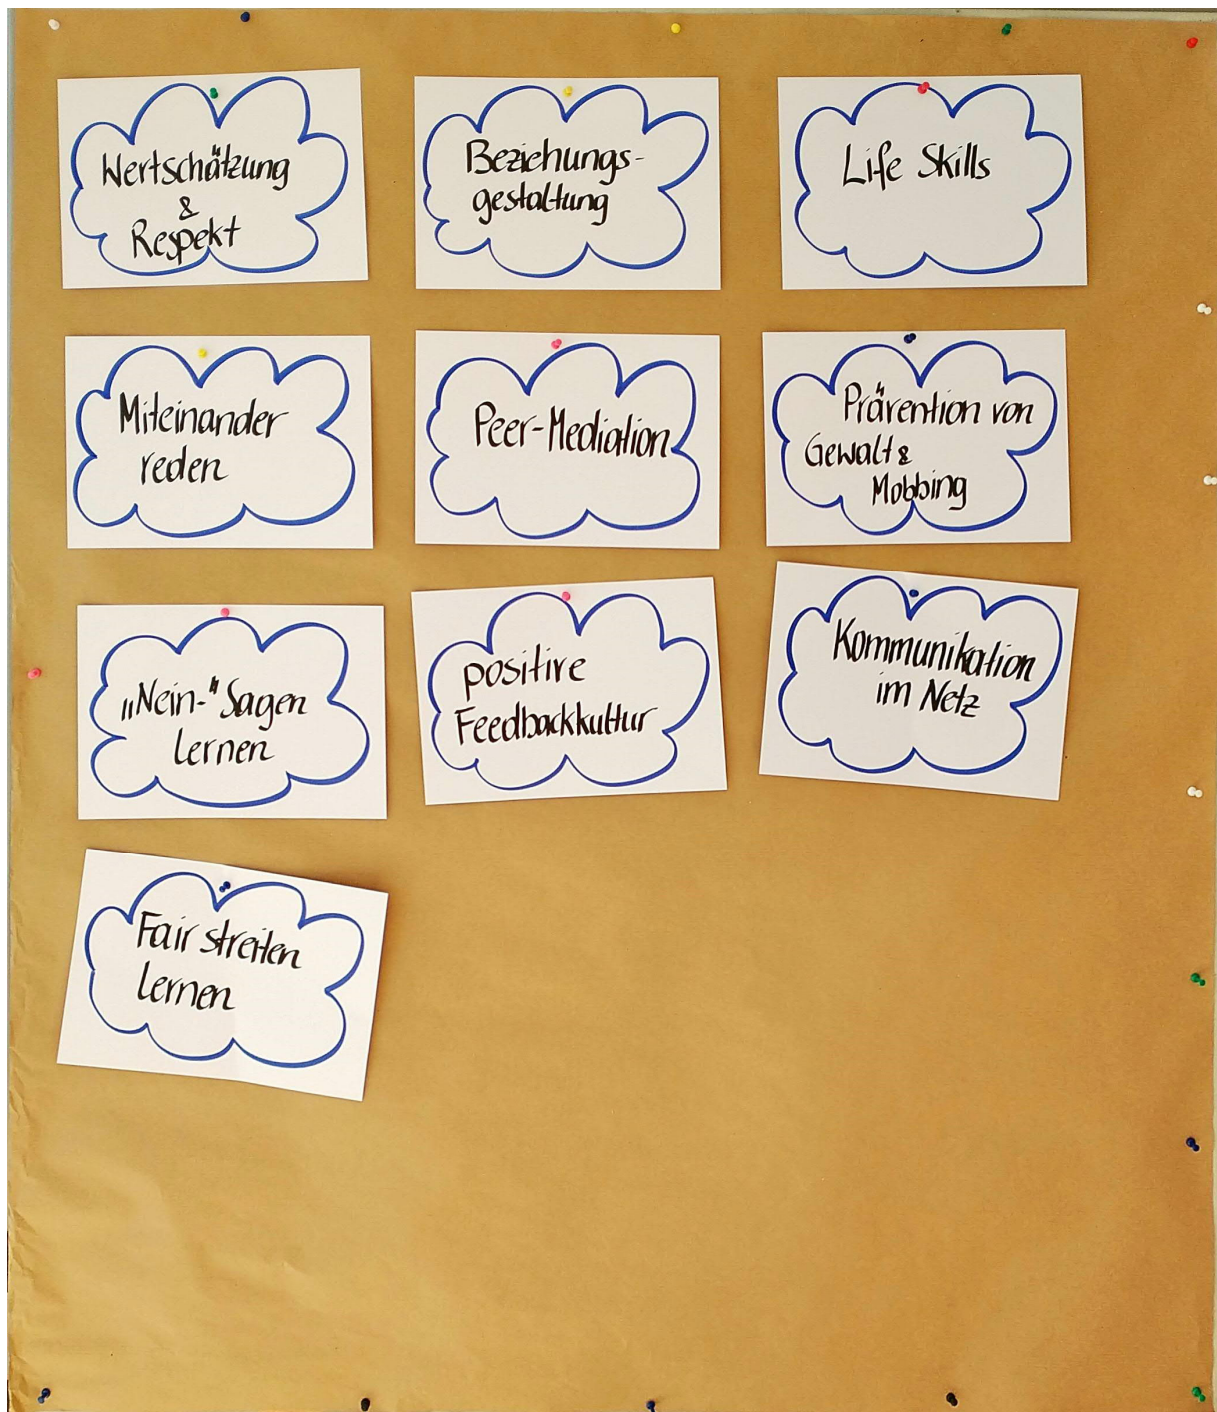 Wertschätzung
&
Respekt
Beziehungs-
gestaltung
Life Skills
Miteinander
reden
Peer-Mediation
Prävention von
Gewalt &
Mobbing
„Nein-" Sagen
lernen
positive
Feedbackkultur
Kommunikation
im Netz
Fair streiten
lernen